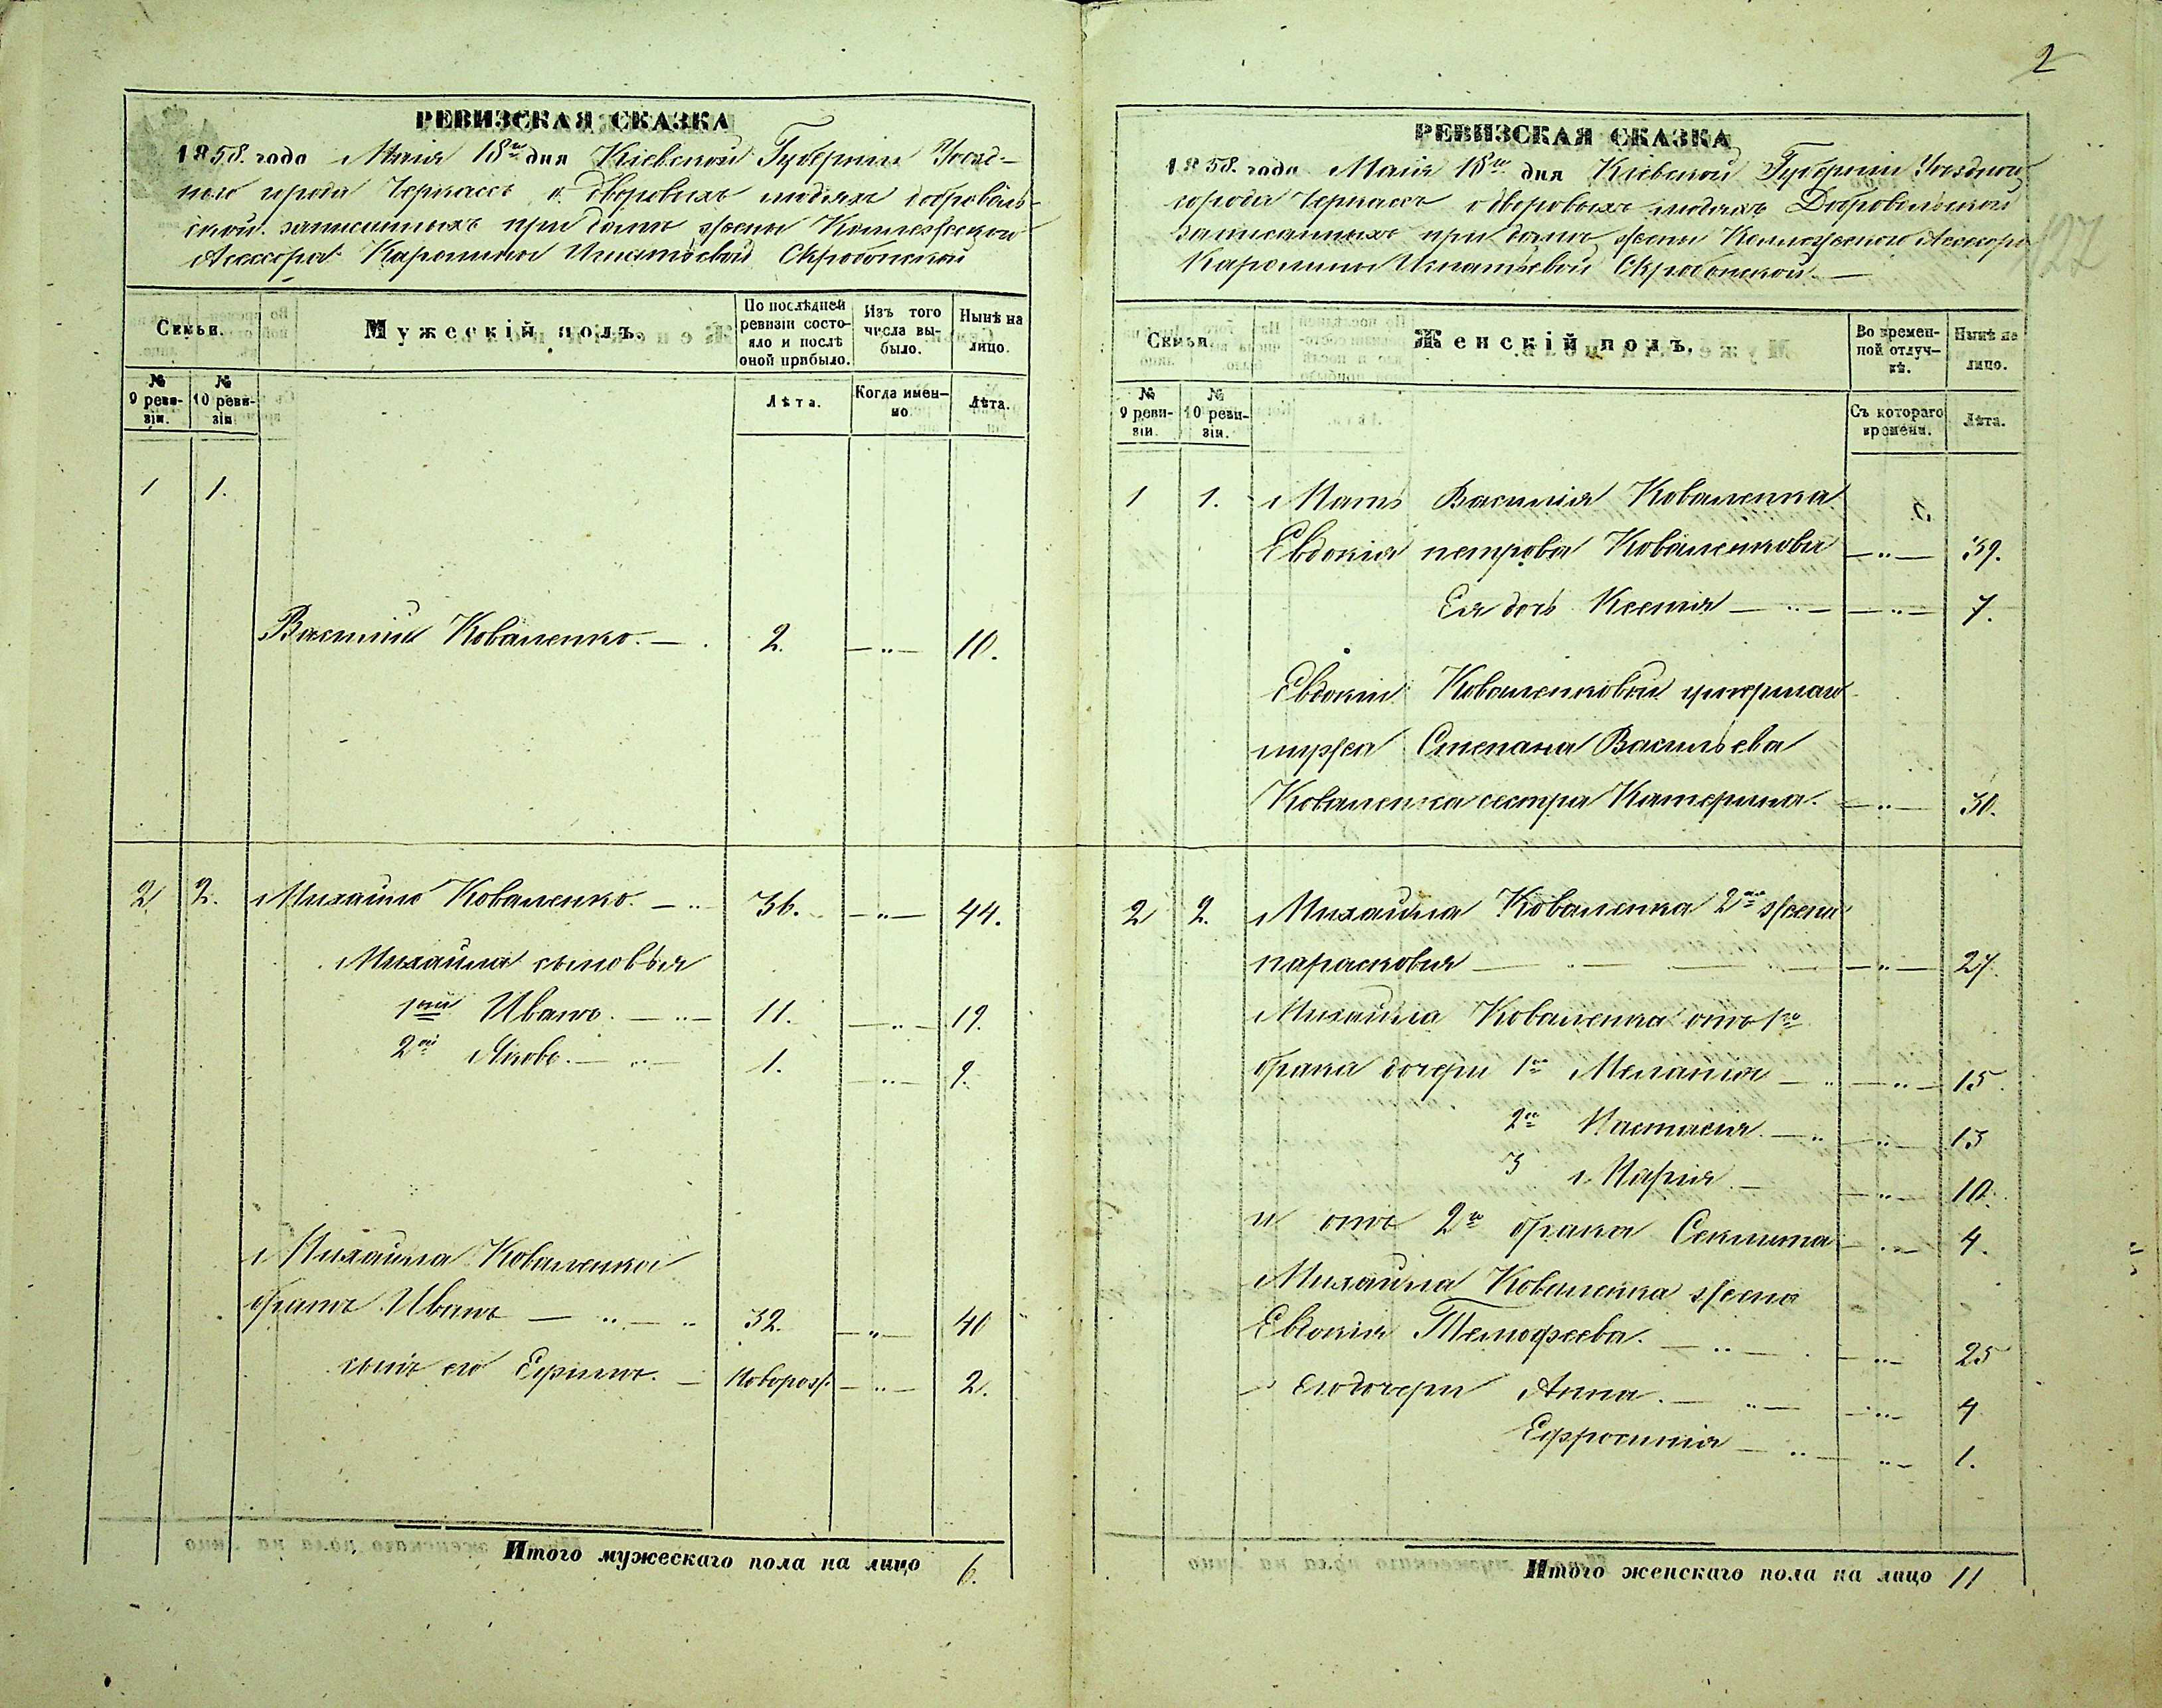 2
127
РЕВИЗСКАЯ СКАЗКА
1858. года Маія 18го дня Кіевской Губерніи Уезд-
ного города Черкасъ о дворовыхъ людяхъ
записанныхъ при доме жены Коллежского
Асессора Каролины Игнатьевой Скробонской
Семьи.
Мужескій полъ.
По послѣдней ревизіи состо-
яло и послѣ оной прибыло.
Изъ того числа вы-
было.
Нынѣ на лицо.
№ 9 реви-
зіи.
№ 10 реви-
зіи.
Лѣта.
Когда имен-
но.
Лѣта.
1 1.
Василий Коваленко. — 2. —„— 10.
2. 2. Михайло Коваленко. — 36. —„— 44.
Михайла сыновья
1ый Иванъ. — 11. —„— 19.
2ой Яковъ. — 1. —„— 9.
Михайла Коваленка
братъ Иванъ — 32. —„— 40
сынъ его Ефимъ. — Новорож. —„— 2.
Итого мужескаго пола на лицо 6.
РЕВИЗСКАЯ СКАЗКА
1858. года Маія 18го дня Кіевской Губерніи Уездного
города Черкасъ о дворовыхъ людяхъ
записанныхъ при доме жены Коллежского Асессора
Каролины Игнатьевой Скробонской. —
Семьи.
Женскій полъ.
Во времен-
ной отлуч-
кѣ.
Нынѣ на лицо.
№ 9 реви-
зіи.
№ 10 реви-
зіи.
Съ котораго времени.
Лѣта.
1 1. Мать Василія Коваленка
Евдокія петрова Коваленкова —„— 39.
Ея дочь Ксенія — —„— 7.
Евдокіи Коваленковой умершаго
мужа Степана Васильева
Коваленка сестра Катерина. —„— 30.
2 2. Михайла Коваленка 2ая жена
парасковия — —„— 27.
Михайла Коваленка отъ 1го
брака дочери 1я Меланія — —„— 15.
2я Настасия. — —„— 13
3 Марія. — —„— 10.
и отъ 2го брака Секлита —„— 4.
Михайла Коваленка жена
Евдокія Темофеева. — —„— 25
его дочери Анна. — —„— 4
Ефросинія — —„— 1.
Итого женскаго пола на лицо 11